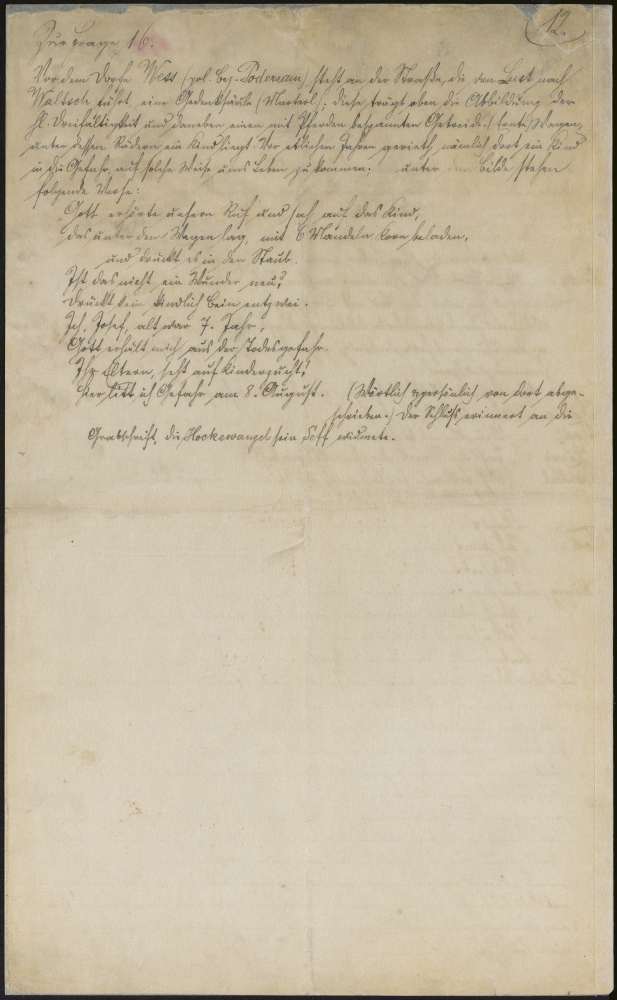 12.
Zur Frage 16.
Vor dem Dorfe Wess (pol. Bez. Podersam) steht an der Straße, die von Luck nach
Waltsch führt, eine Gedenksäule (Marterl); diese trägt oben die Abbildung der
hl. Dreifaltigkeit und daneben einen mit Pferden bespannten Getreide- Wagen,
unter dessen Rädern ein Kind liegt. Vor etlichen Jahren gerieth nämlich dort ein Kind
in die Gefahr, auf solche Weise ums Leben zu kommen. Unter dem Bilde stehen
folgende Verse:
Gott erhörte unsern Ruf und sah auf das Kind,
das unter den Wagen lag, mit 6 Mandeln Korn beladen,
und drückt es in den Staub.
Ist das nicht ein Wunder neu?
Drückt kein kindlich Bein entzwei.
Ich, Josef, alt war 7. Jahr,
Gott erhält mich aus der Todesgefahr.
Ihr Eltern, seht auf Kinderzucht!
Hier litt ich Gefahr am 8. August. (Wörtlich persönlich von dort abge-
schrieben.) Der Schluß erinnert an die
Grabschrift, die Hockewanzel sein Seff widmete.